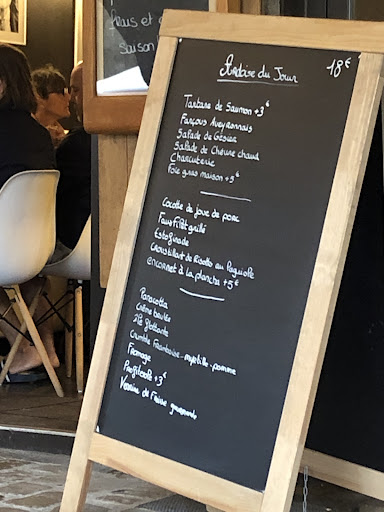 frais et
saison
Ardoise du Jour 18€
Tartare de Saumon +3€
Farçous Aveyronnais
Salade de Gésier
Salade de Chèvre chaud
Charcuterie
Foie gras maison +5€
Cocotte de joue de porc
Faux Filet grillé
Estofinade
Croustillant de Risotto au
encornet à la plancha +5€
Panacotta
Crème brulée
2 Be glottants
Crumble Framboise-myrtille-pomme
Fromage
Profiterole +3€
Verrine de Fraise gourmande